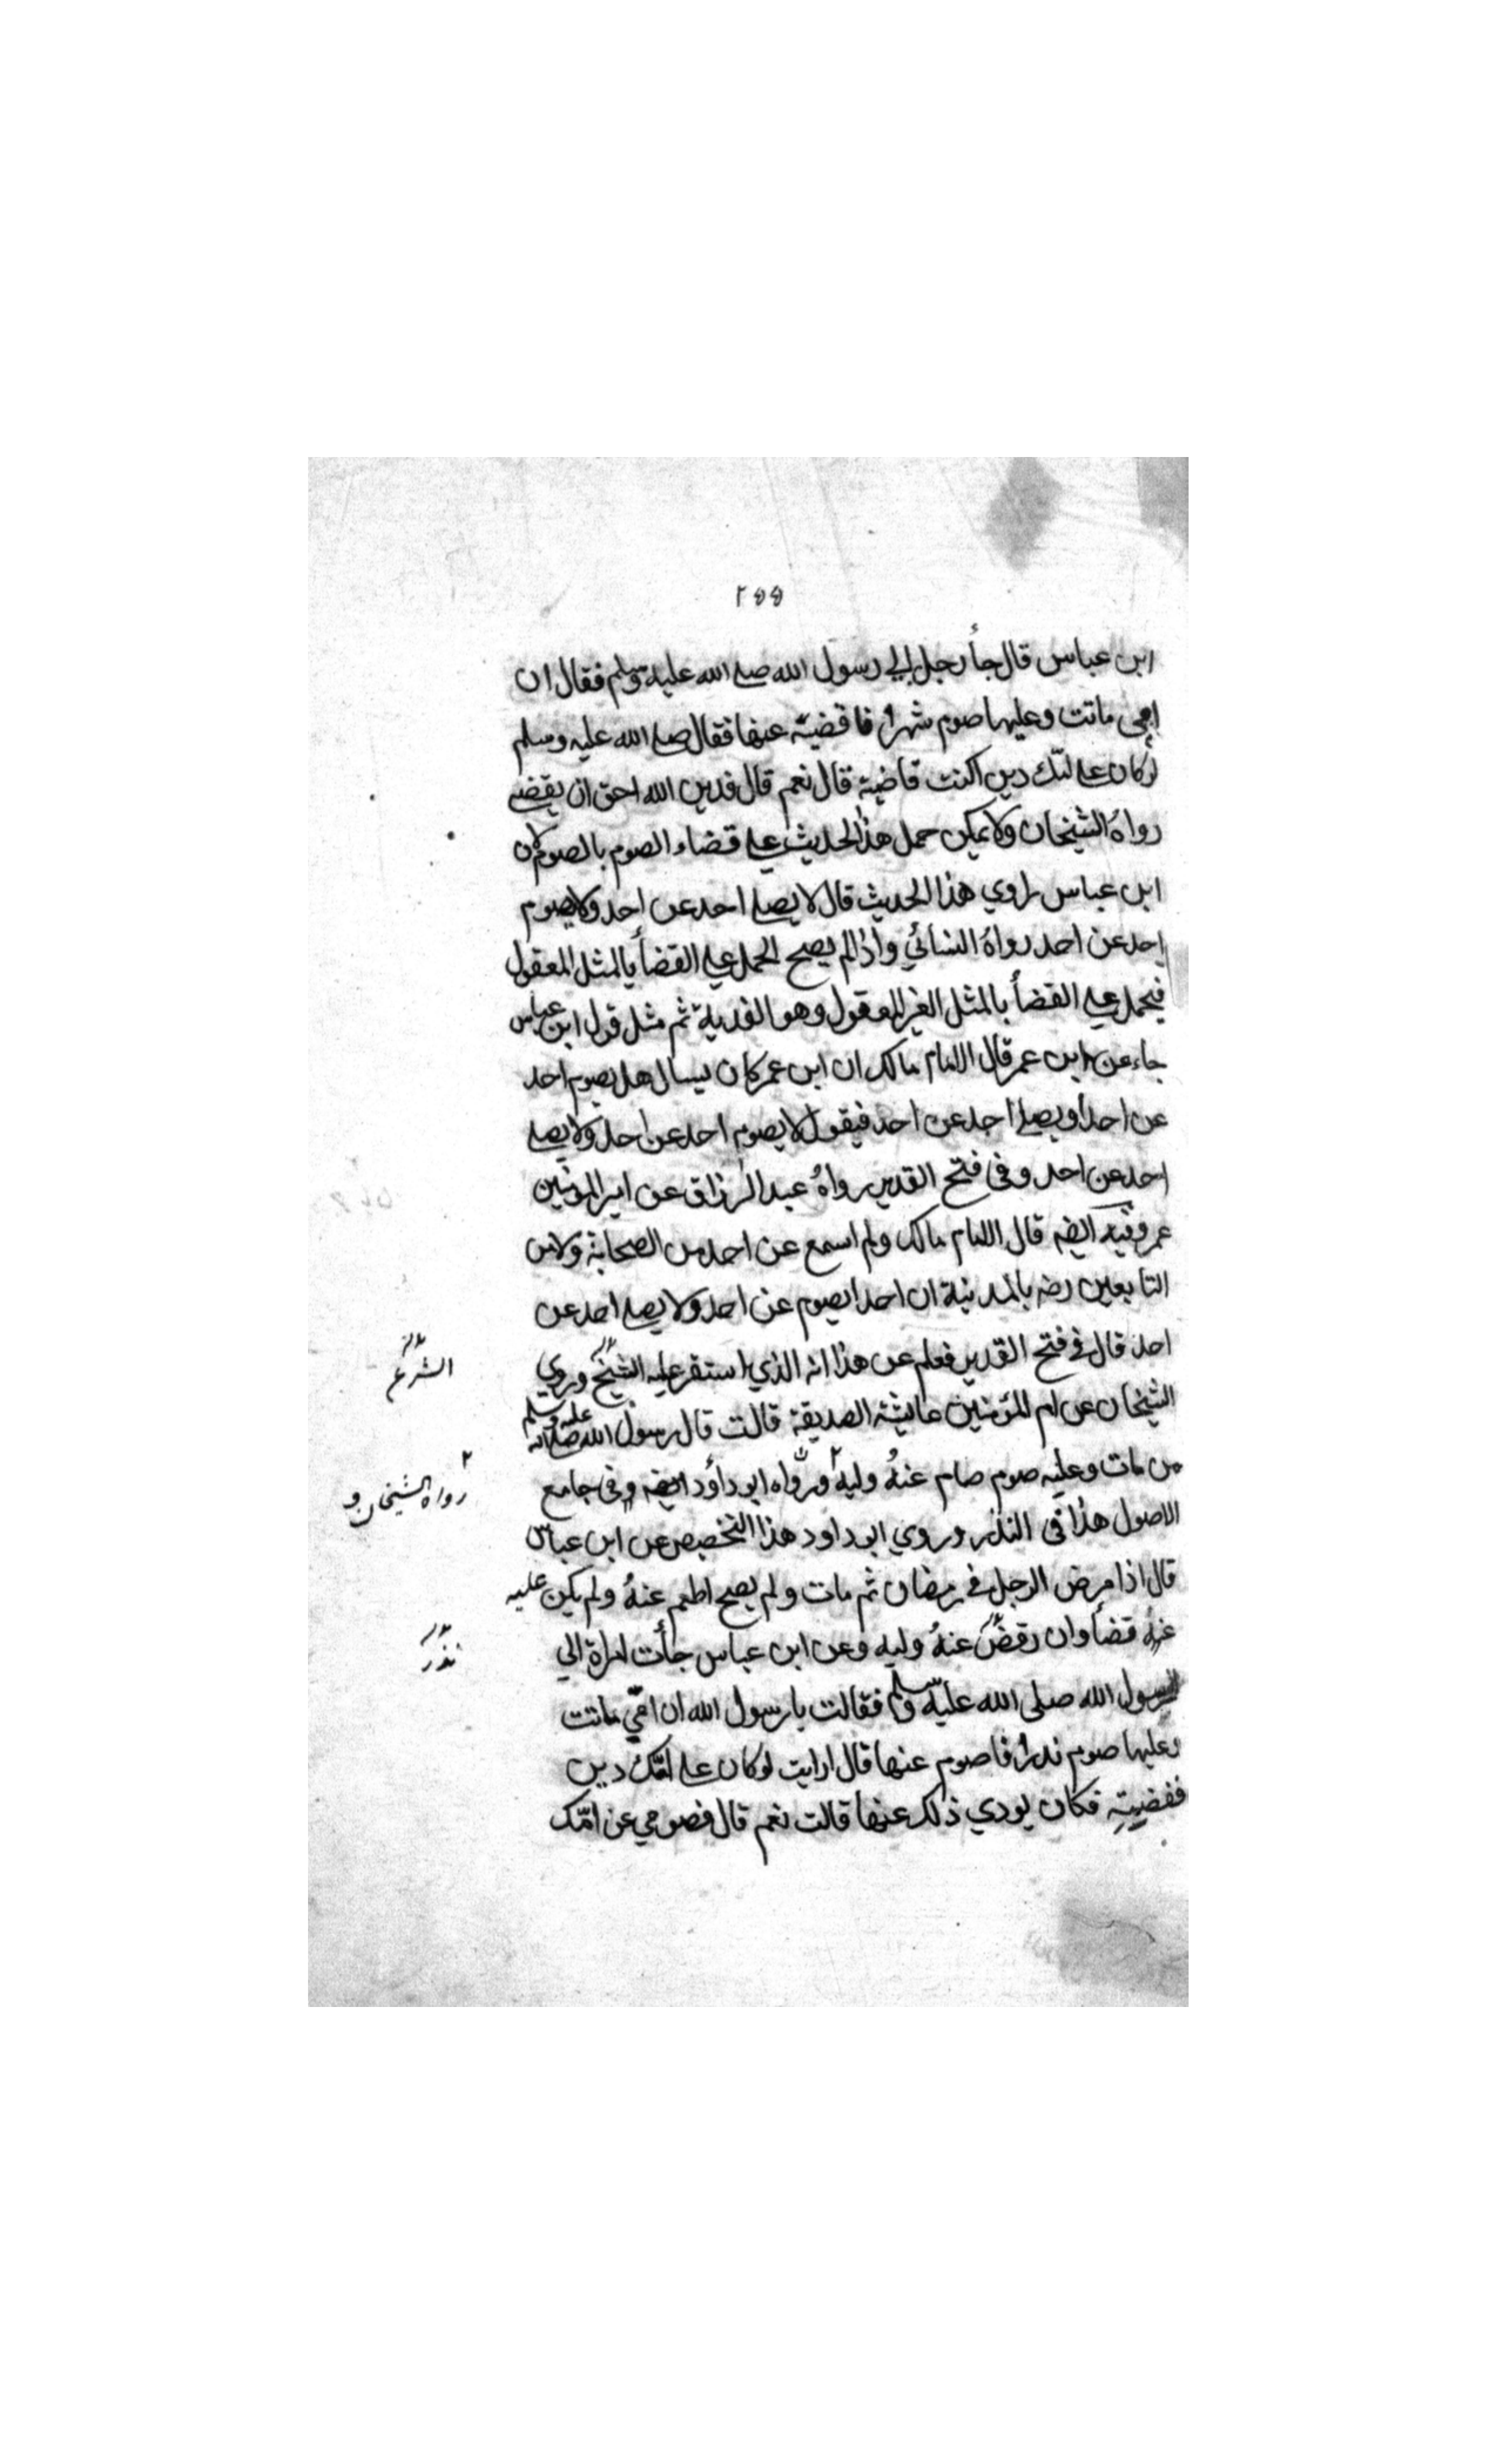 ٢٥٥
ابن عباس قال جأ رجل الي رسول الله صلے الله عليه وسلم فقال ان
امی ماتت وعليها صوم شهر افاقضيه عنها فقال صلے الله عليه وسلم
لوكان علے امّك دين اكنت قاضيه قال نعم قال فدين الله احق ان يقضے
رواهُ الشيخان ولا يمكن حمل هذا الحديث علے قضاء الصوم بالصوم لان
ابن عباس راوي هذا الحديث قال لا يصلے احد عن احد ولا يصوم
احد عن احد رواهُ النسائي واذا لم يصح الحمل علے القضأ بالمثل المعقول
فيحمل علے القضأ بالمثل الغير المعقول وهو الفدية ثم مثل قول ابن عباس
جاء عن ابن عمر قال الامام مالك ان ابن عمر كان يسال هل يصوم احد
عن احد او يصلے احد عن احد فيقول لا يصوم احد عن احد ولا يصلے
احد عن احد وفی فتح القدير رواهُ عبد الرزاق عن امير المؤمنين
عمر وفيه ايضہ قال الامام مالك ولم اسمع عن احد من الصحابة ولا من
التابعين رضہ بالمدينة ان احدا يصوم عن احد ولا يصلے احد عن
احد قال فے فتح القدير فعلم عن هذا انه الذي استقر عليه الشيخ وروي
الشرع
الشيخان عن ام المؤمنين عايشة الصديقة قالت قال رسول الله صلے الله عليه وسلم
من مات وعليه صوم صام عنهُ وليه ورواه ابو داؤد ايضہ وفی جامع
رواه الشيخان و
الاصول هذا فی النذر وروي ابو داود هذا التخصيص عن ابن عباس
قال اذا مرض الرجل فے رمضان ثم مات ولم يصح اطعم عنهُ ولم يكن عليه
عنه قضأ وان عنهُ وليه وعن ابن عباس جأت امراة الي
نذر
رسول الله صلى الله عليه وسلم فقالت يا رسول الله ان امّي ماتت
وعليها صوم نذر افاصوم عنها قال ارايت لوكان علے امّك دين
فقضيتِه فكان يودي ذلك عنها قالت نعم قال فصومي عن امّك